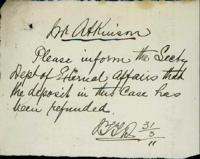 Mr Atkinson
Please inform the Secty
Dept of External Affairs that
the deposit in this Case has
been refunded.
31/3/11